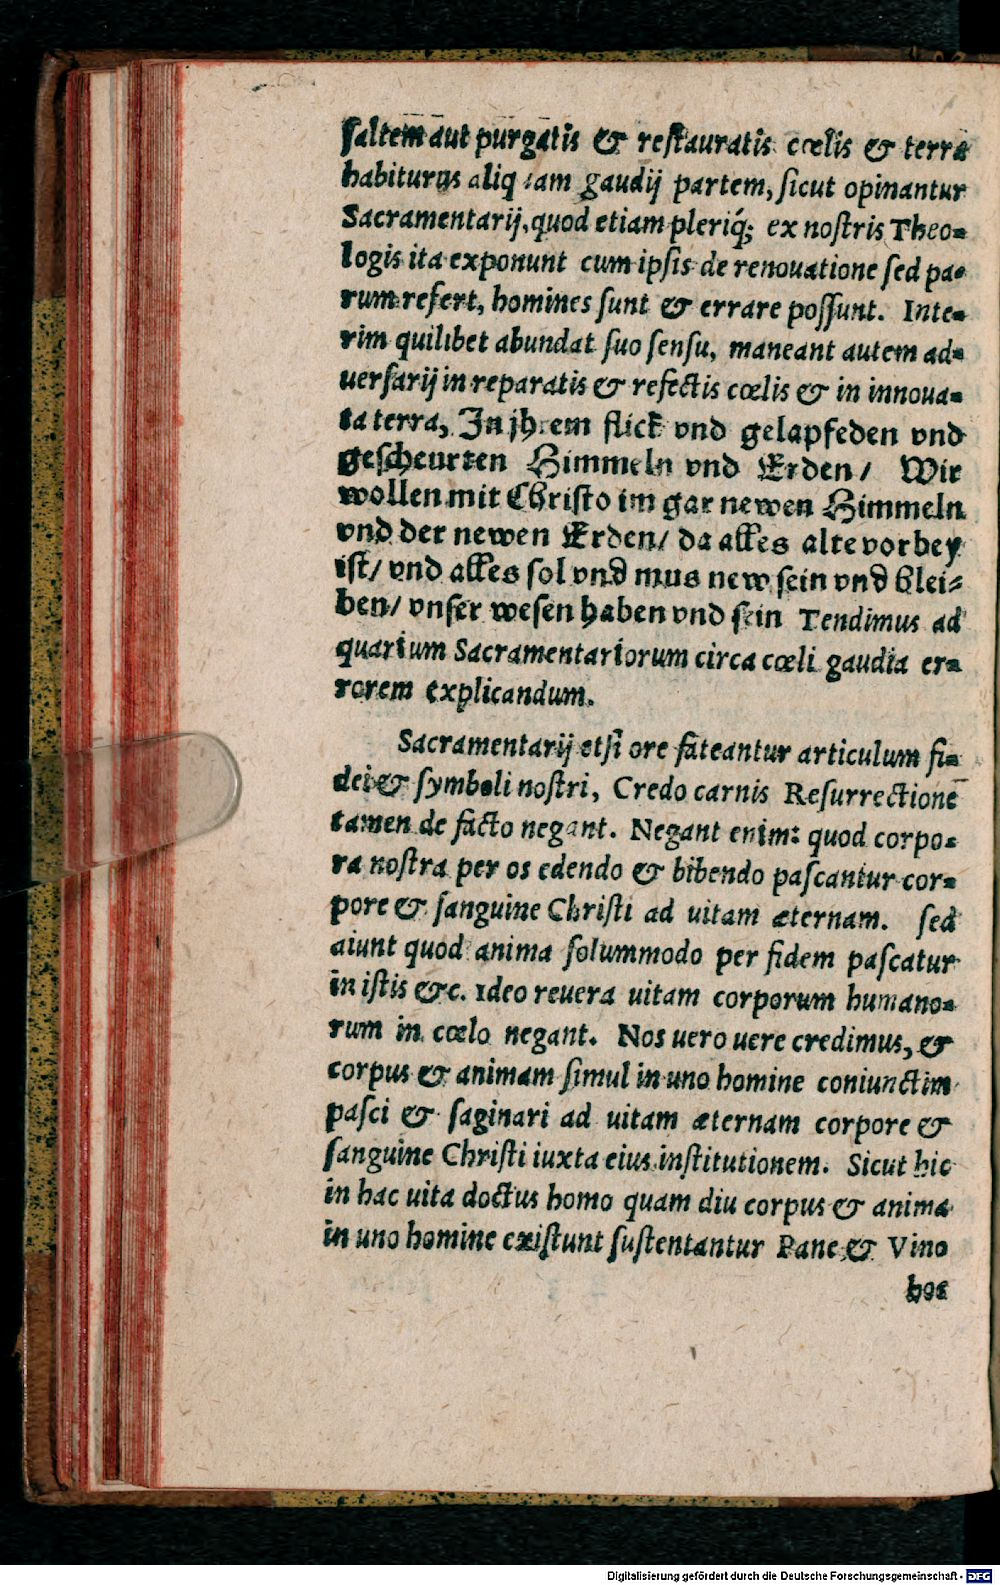 saltem aut purgatis & restauratis cœlis & terra
habiturus aliquam gaudij partem, sicut opinantur
Sacramentarij, quod etiam pleriq́; ex nostris Theo-
logis ita exponunt cum ipsis de renouatione sed pa-
rum refert, homines sunt & errare possunt. Inte-
rim quilibet abundat suo sensu, maneant autem ad-
uersarij in reparatis & refectis cœlis & in innoua-
ta terra, In jhrem flick vnd gelapfeden vnd
gescheurten Himmeln vnd Erden/ Wir
wollen mit Christo im gar newen Himmeln
vnd der newen Erden/ da alles alte vorbey
ist/ vnd alles sol vnd mus new sein vnd blei-
ben/ vnser wesen haben vnd sein Tendimus ad
quartum Sacramentariorum circa cœli gaudia er-
rorem explicandum.
Sacramentarij etsi ore fateantur articulum fi-
dei & symboli nostri, Credo carnis Resurrectionē
tamen de facto negant. Negant enim: quod corpo-
ra nostra per os edendo & bibendo pascantur cor-
pore & sanguine Christi ad uitam æternam. sed
aiunt quod anima solummodo per fidem pascatur
in istis &c. ideo reuera uitam corporum humano-
rum in cœlo negant. Nos uero uere credimus, &
corpus & animam simul in uno homine coniunctim
pasci & saginari ad uitam æternam corpore &
sanguine Christi iuxta eius institutionem. Sicut hic
in hac uita doctus homo quam diu corpus & anima
in uno homine existunt sustentantur Pane & Vino
hoc
Digitalisierung gefördert durch die Deutsche Forschungsgemeinschaft - DFG